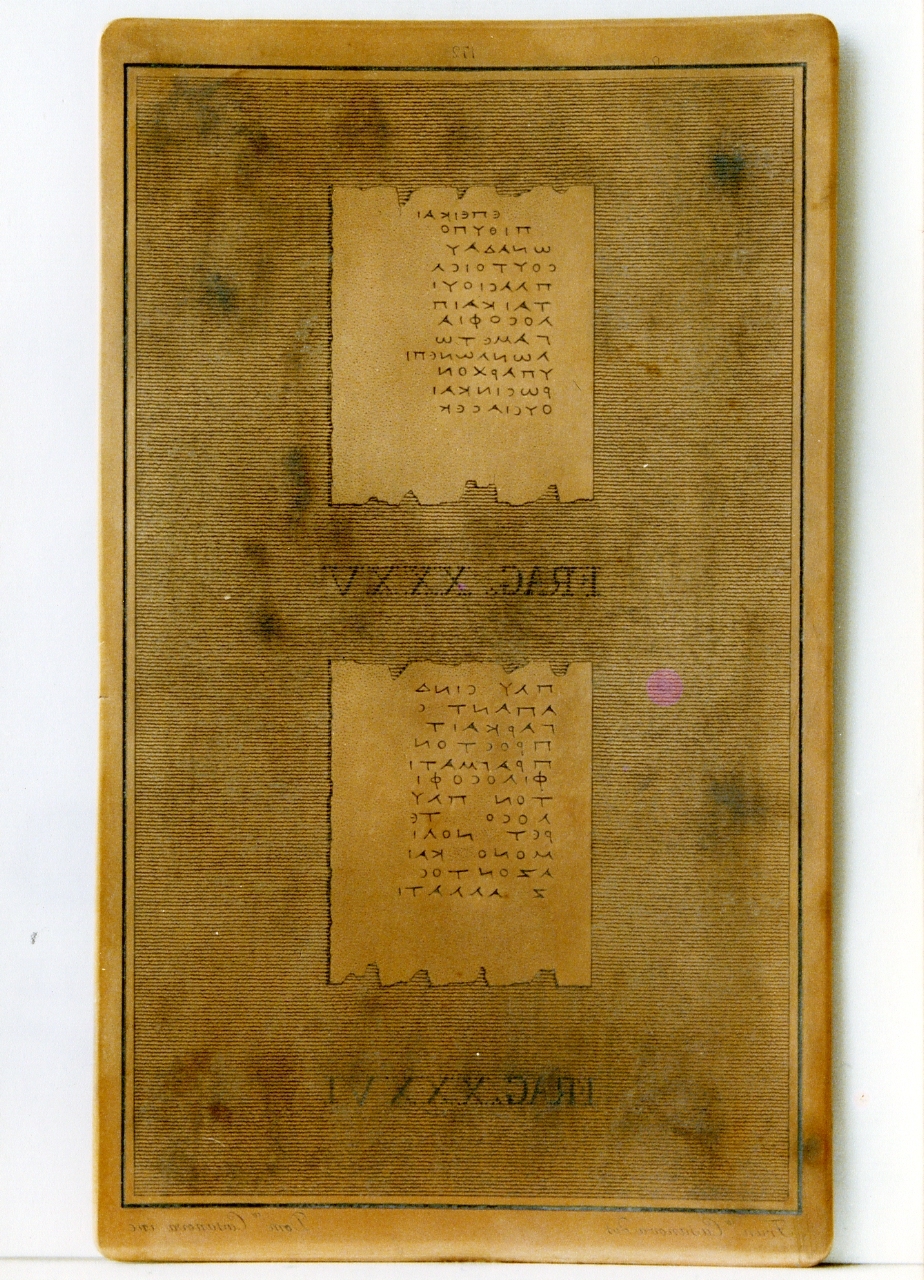 172
ЄΠЄΙΚΑΙ
ΠΙΘΥΠΟ
ΩΝΑΔΑΥ
CΟΥΤΟΙCΑ
ΠΛΑCΙΟΥΙ
ΤΑΙΚΑΙΠ
ΛΟCΟΦΙΑ
ΓΑΜЄΤΩ
ΛΩΝΛΩΝЄΠΙ
ΥΠΑΡΧΟΝ
ΡΩCΙΝΚΑΙ
ΟΥCΙΑCЄΚ
FRAG. XXXV
ΠΑΥ CΙΝΔ
ΑΠΑΝΤ C
ΓΑΡΚΑΙΤ
ΠΡΟCΤΟΝ
ΠΡΑΓΜΑΤΙ
ΦΙΛΟCΟΦΙ
ΤΟΝ ΠΛΥ
ΛΟCΟ ΤЄ
ΡЄΤ ΝΟΛΙ
ΜΟΝΟ ΚΑΙ
ΛΖΟΝΤΟC
Ζ ΑΛΛΑΤΙ
FRAG. XXXVI
Casanova
Casanova inc